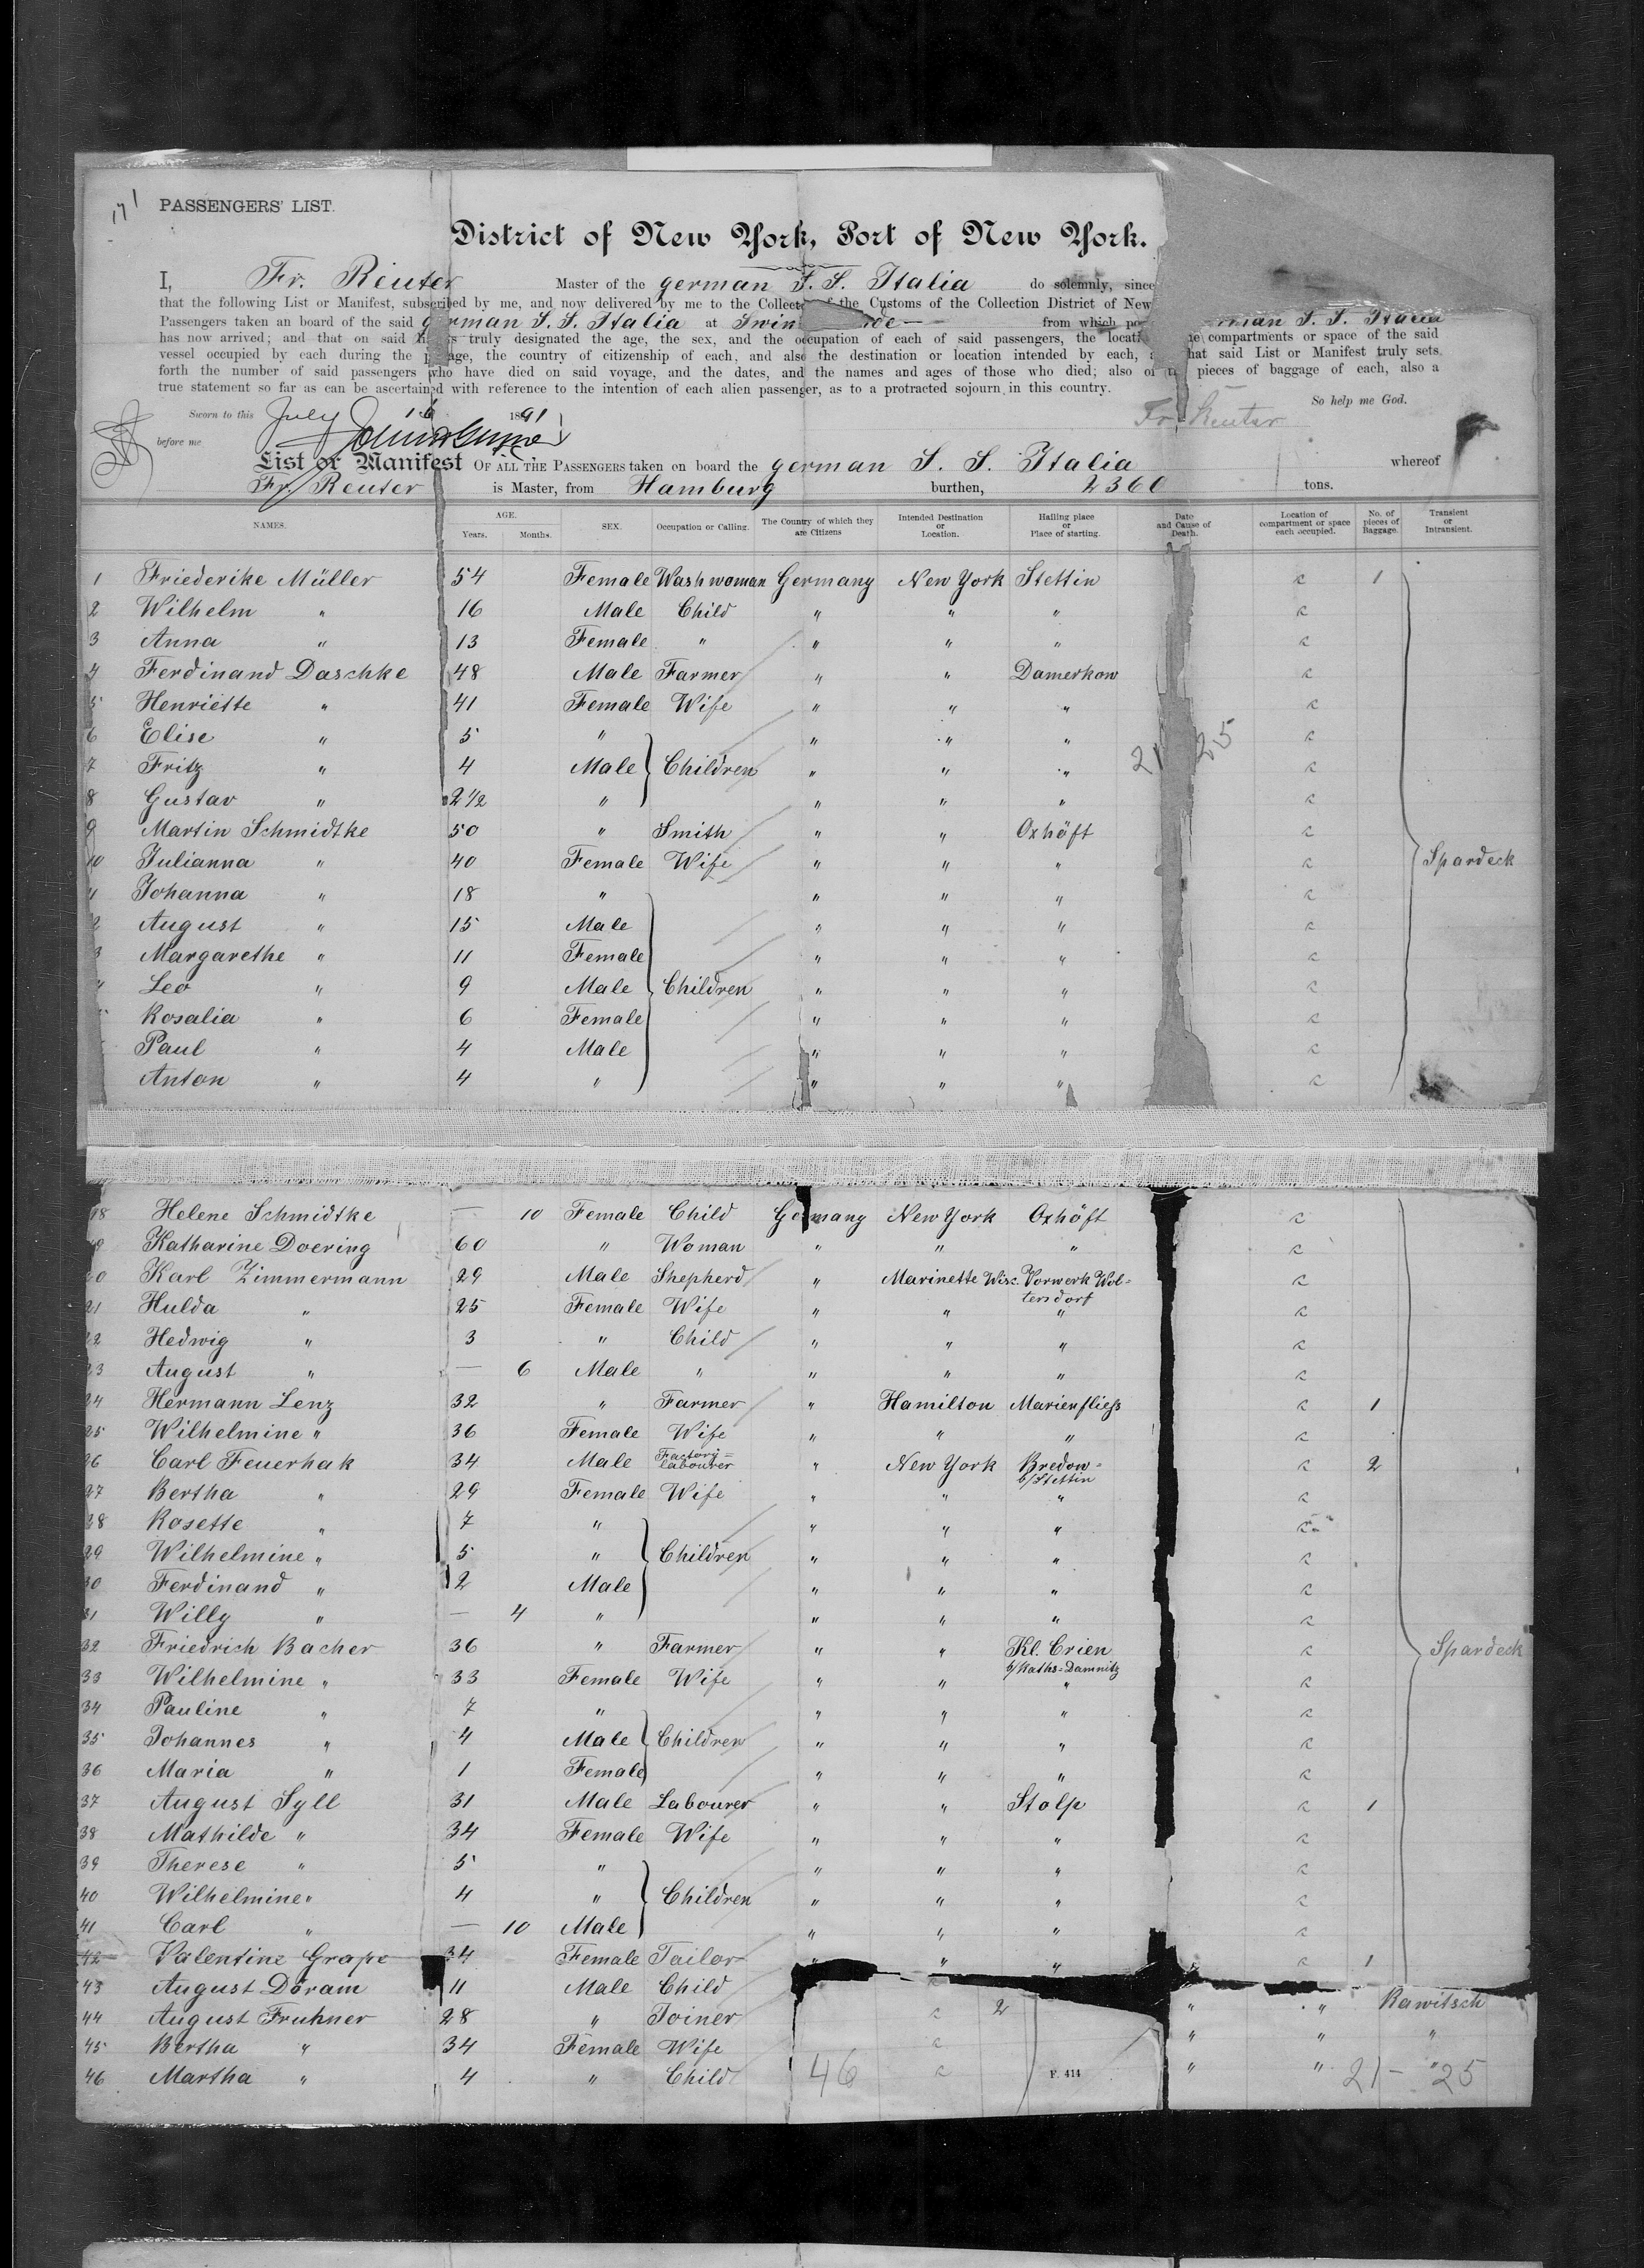 171
PASSENGERS' LIST.
District of New York, Port of New York.
I, Fr. Reuter Master of the german S. S. Italia do solemnly, since
that the following List or Manifest, subscribed by me, and now delivered by me to the Collector of the Customs of the Collection District of New
Passengers taken an board of the said german S. S. Italia at from which german S. S. Italia
has now arrived; and that on said is truly designated the age, the sex, and the occupation of each of said passengers, the compartments or space of the said
vessel occupied by each during the the country of citizenship of each, and also the destination or location intended by each, that said List or Manifest truly sets
forth the number of said passengers who have died on said voyage, and the dates, and the names and ages of those who died; also of pieces of baggage of each, also a
true statement so far as can be ascertained with reference to the intention of each alien passenger, as to a protracted sojourn in this country.
So help me God.
Sworn to this July 16 1891 Fr. Reuter
before me
List or Manifest OF ALL THE PASSENGERS taken on board the german S. S. Italia whereof
Fr. Reuter is Master, from Hamburg burthen, 2360 tons.
NAMES. AGE. Years. Months. SEX. Occupation or Calling. The Country of which they are Citizens Intended Destination or Location. Hailing place or Place of starting. Date and Cause of Death. Location of compartment or space each occupied. No. of pieces of Baggage. Transient or Intransient.
1 Friederike Müller 54 Female Washwoman Germany New York Stettin 1
2 Wilhelm " 16 Male Child " " "
3 Anna " 13 Female " " " "
4 Ferdinand Daschke 48 Male Farmer " " Damerkow
5 Henriette " 41 Female Wife " " "
6 Elise " 5 " " " " 21 25
7 Fritz " 4 Male Children " " "
8 Gustav " 2 1/2 " " " "
9 Martin Schmidtke 50 " Smith " " Oxhöft
10 Julianna " 40 Female Wife " " " Spardeck
Johanna " 18 " " " "
August " 15 Male " " "
Margarethe " 11 Female " " "
Leo " 9 Male Children " " "
Rosalia " 6 Female " " "
Paul " 4 Male " " "
Anton " 4 " " " "
18 Helene Schmidtke — 10 Female Child Germany New York Oxhöft
19 Katharine Doering 60 " Woman " " "
20 Karl Zimmermann 29 Male Shepherd " Marinette Wisc. Vorwerk Wol=
tersdorf
21 Hulda " 25 Female Wife " " "
22 Hedwig " 3 " Child " " "
23 August " — 6 Male " " " "
24 Hermann Lenz 32 " Farmer " Hamilton Marienfliess 1
25 Wilhelmine " 36 Female Wife " " "
26 Carl Feuerhak 34 Male Factory=labourer " New York Bredow= 2
b/Stettin
27 Bertha " 29 Female Wife " " "
28 Rosette " 7 " " " "
29 Wilhelmine " 5 " Children " " "
30 Ferdinand " 2 Male " " "
31 Willy " — 4 " " " "
32 Friedrich Bacher 36 " Farmer " " Kl. Crien Spardeck
b/Raths=Damnitz
33 Wilhelmine " 33 Female Wife " " "
34 Pauline " 7 " " " "
35 Johannes " 4 Male Children " " "
36 Maria " 1 Female " " "
37 August Syll 31 Male Labourer " " Stolp 1
38 Mathilde " 34 Female Wife " " "
39 Therese " 5 " " " "
40 Wilhelmine " 4 " Children " " "
41 Carl " — 10 Male " " "
42 Valentine Grape 34 Female Tailor " " " 1
43 August Döram 11 Male Child
44 August Fruhner 28 " Joiner 2 " " Rawitsch
45 Bertha " 34 Female Wife " " "
46 Martha " 4 " Child 46 F. 414 " " "
21 - 25